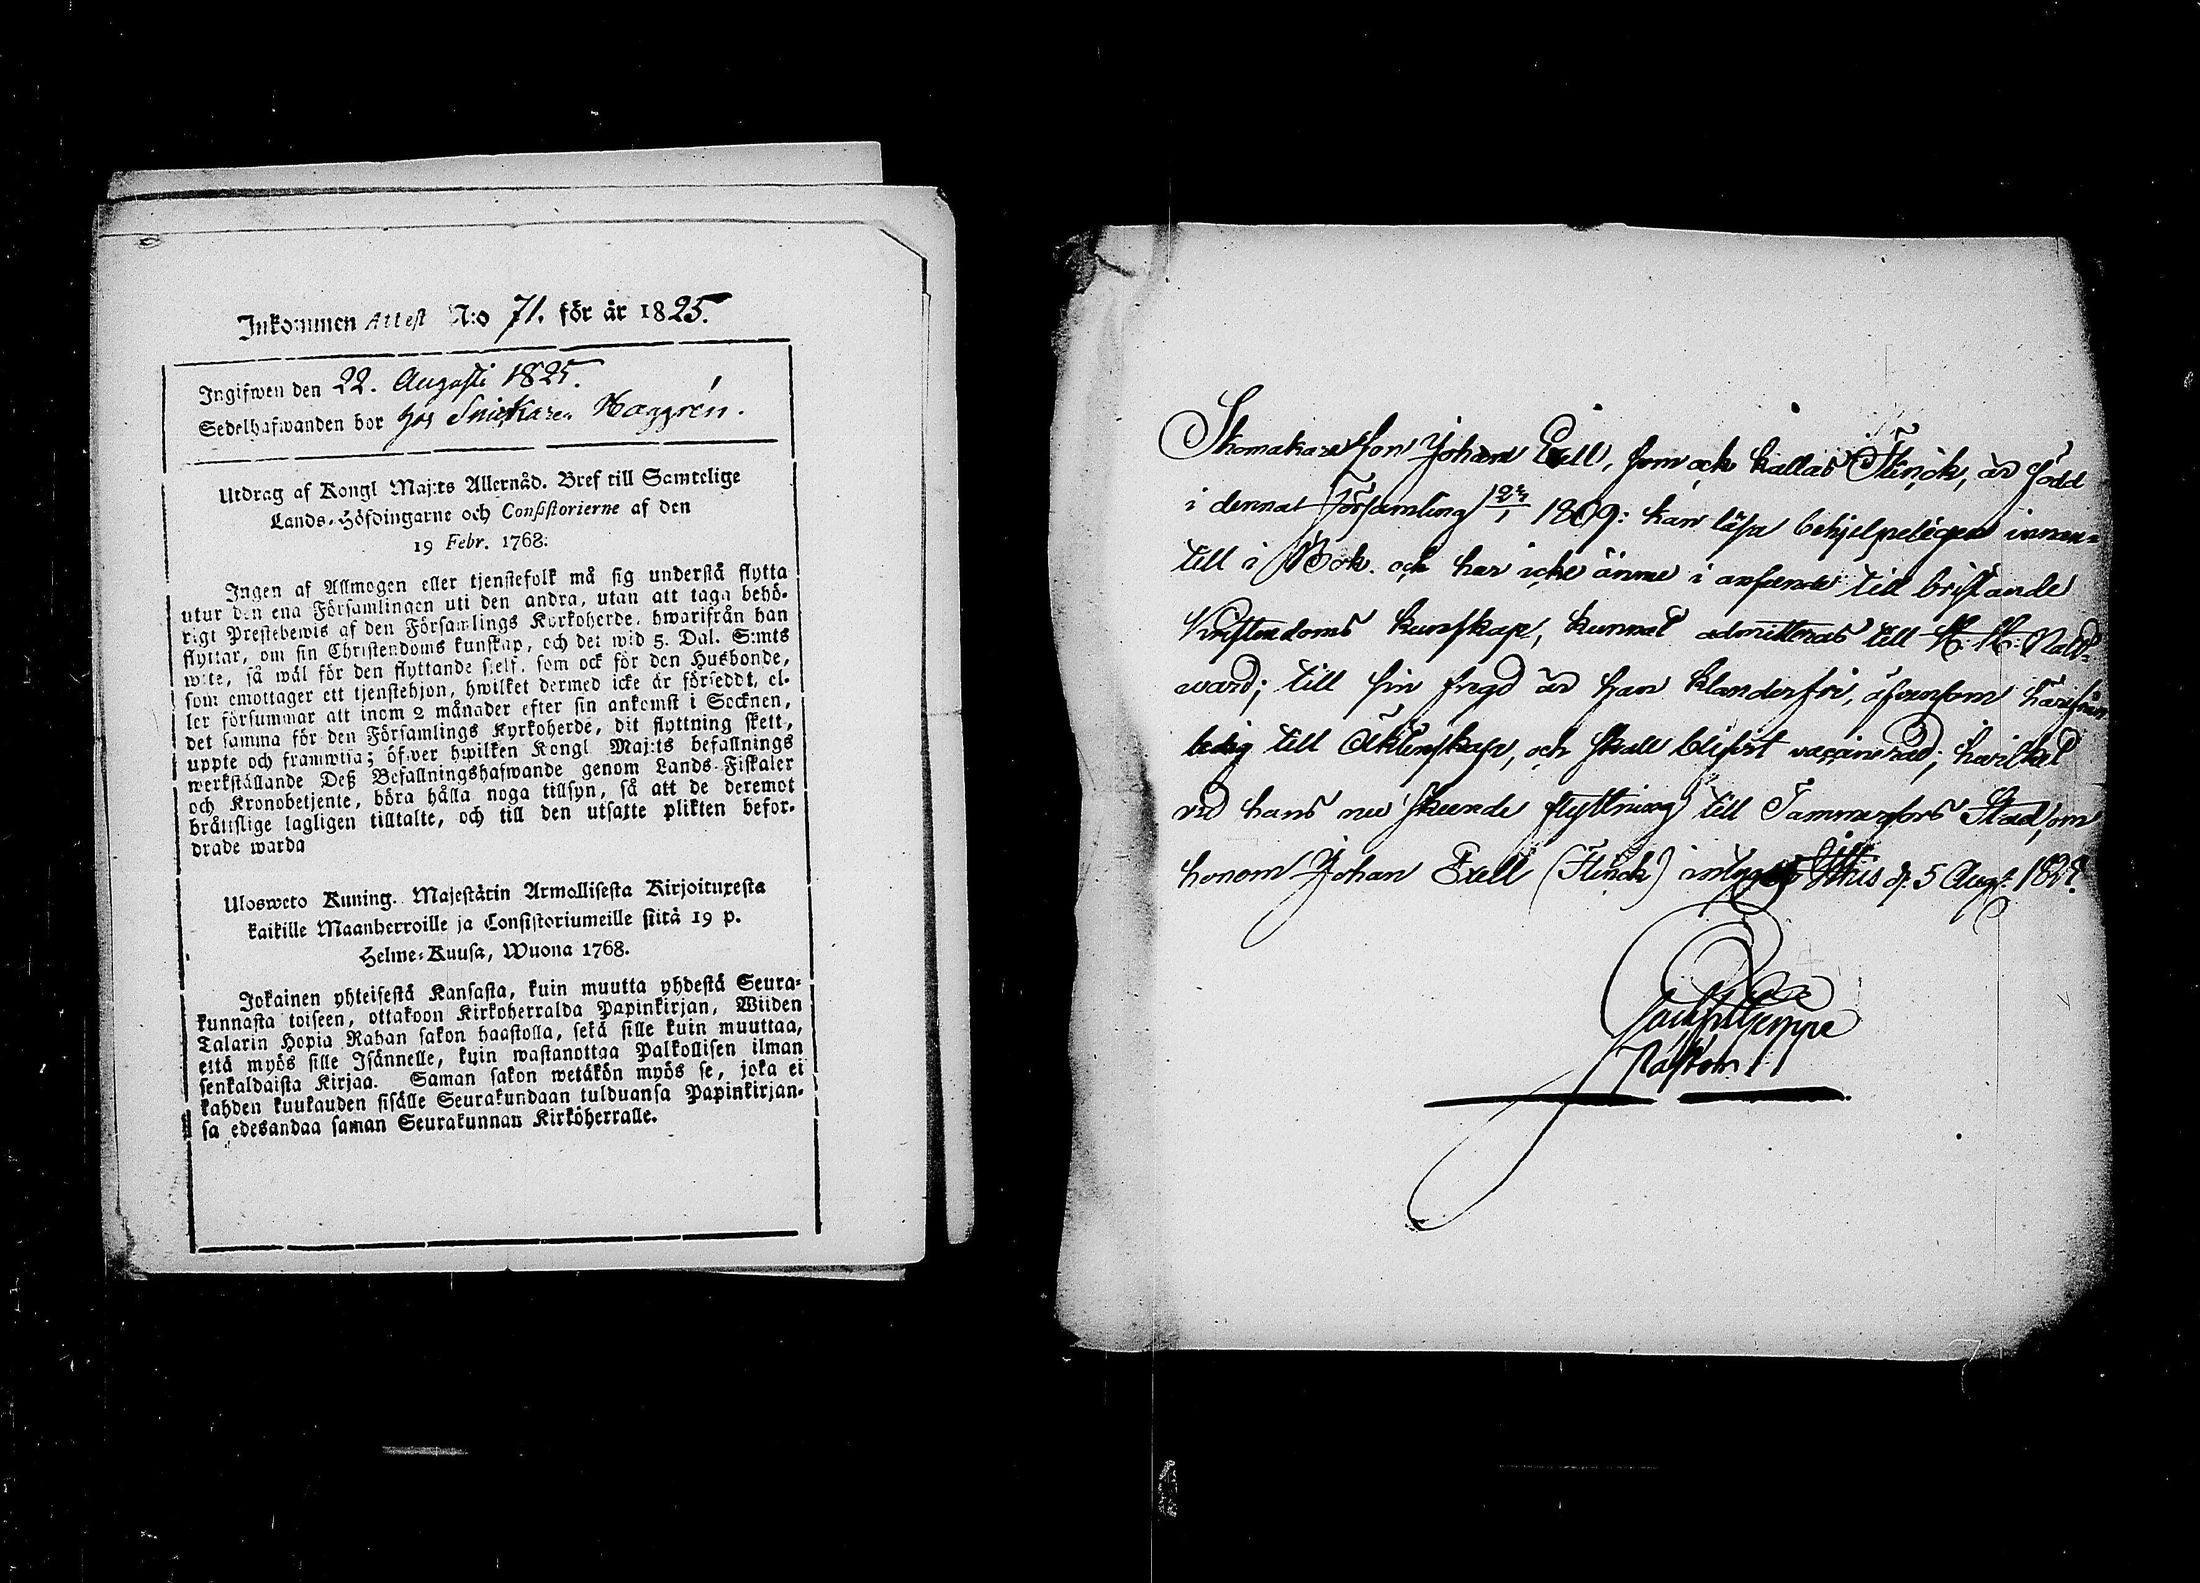 Inkommen Attest N:o 71. för år 1825.
Ingifwen den 22. Augusti 1825.
Sedelhafwanden bor hos Snickaren Haggrén.
Utdrag af Kongl Maj:ts Allernåd. Bref till Samtelige
Lands-Höfdingarne och Consistorierne af den
19 Febr. 1768.
Ingen af Allmogen eller tjenstefolk må sig understå flytta
utur den ena Församlingen uti den andra, utan att taga behö-
rigt Prestebewis af den Församlings Kyrkoherde, hwarifrån han
flyttar, om sin Christendoms kunskap, och det wid 5. Dal. S:mts
wite, så wäl för den flyttande sielf, som ock för den Husbonde,
som emottager ett tjenstehjon, hwilket dermed icke är förseddt, el-
ler försummar att inom 2 månader efter sin ankomst i Socknen,
det samma för den Församlings Kyrkoherde, dit flyttning skett,
uppte och framwisa; öfwer hwilken Kongl Maj:ts befallnings
werkställande Deß Befallningshafwande genom Lands-Fiskaler
och Kronobetjente, böra hålla noga tillsyn, så att de deremot
bråttslige lagligen tilltalte, och till den utsatte plikten befor-
drade warda
Ulosweto Kuning. Majestätin Armollisesta Kirjoituxesta
kaikille Maanherroille ja Consistoriumeille siitä 19 p.
Helme-Kuusa, Wuona 1768.
Jokainen yhteisestä Kansasta, kuin muutta yhdestä Seura-
kunnasta toiseen, ottakoon Kirkoherralda Papinkirjan, Wiiden
Talarin Hopia Rahan sakon haastolla, sekä sille kuin muuttaa,
että myös sille Isännelle, kuin wastanottaa Palkollisen ilman
senkaldaista Kirjaa. Saman sakon wetäkön myös se, joka ei
kahden kuukauden sisälle Seurakundaan tulduansa Papinkirjan-
sa edesandaa saman Seurakunnan Kirköherralle.
Skomakare son Johan Exell, som ock kallas Flinck, är född
i denna Församling 23/1 1809: kan läsa behjelpeligen innan-
till i Bok. och har icke ännu i anseende till bristande
Kristendoms kunskap, kunnat admitteras till H. H. Natt-
ward; till sin fregd är han klanderfri, äfvensom härifrån
ledig till Äktenskap, och skall blifvit vaccinerad; hvilket
vid hans nu skeende flyttning till Tammerfors Stad, om
honom Johan Exell (Flinck) intygas Ithis d. 5 Aug. 1825.
Pastor